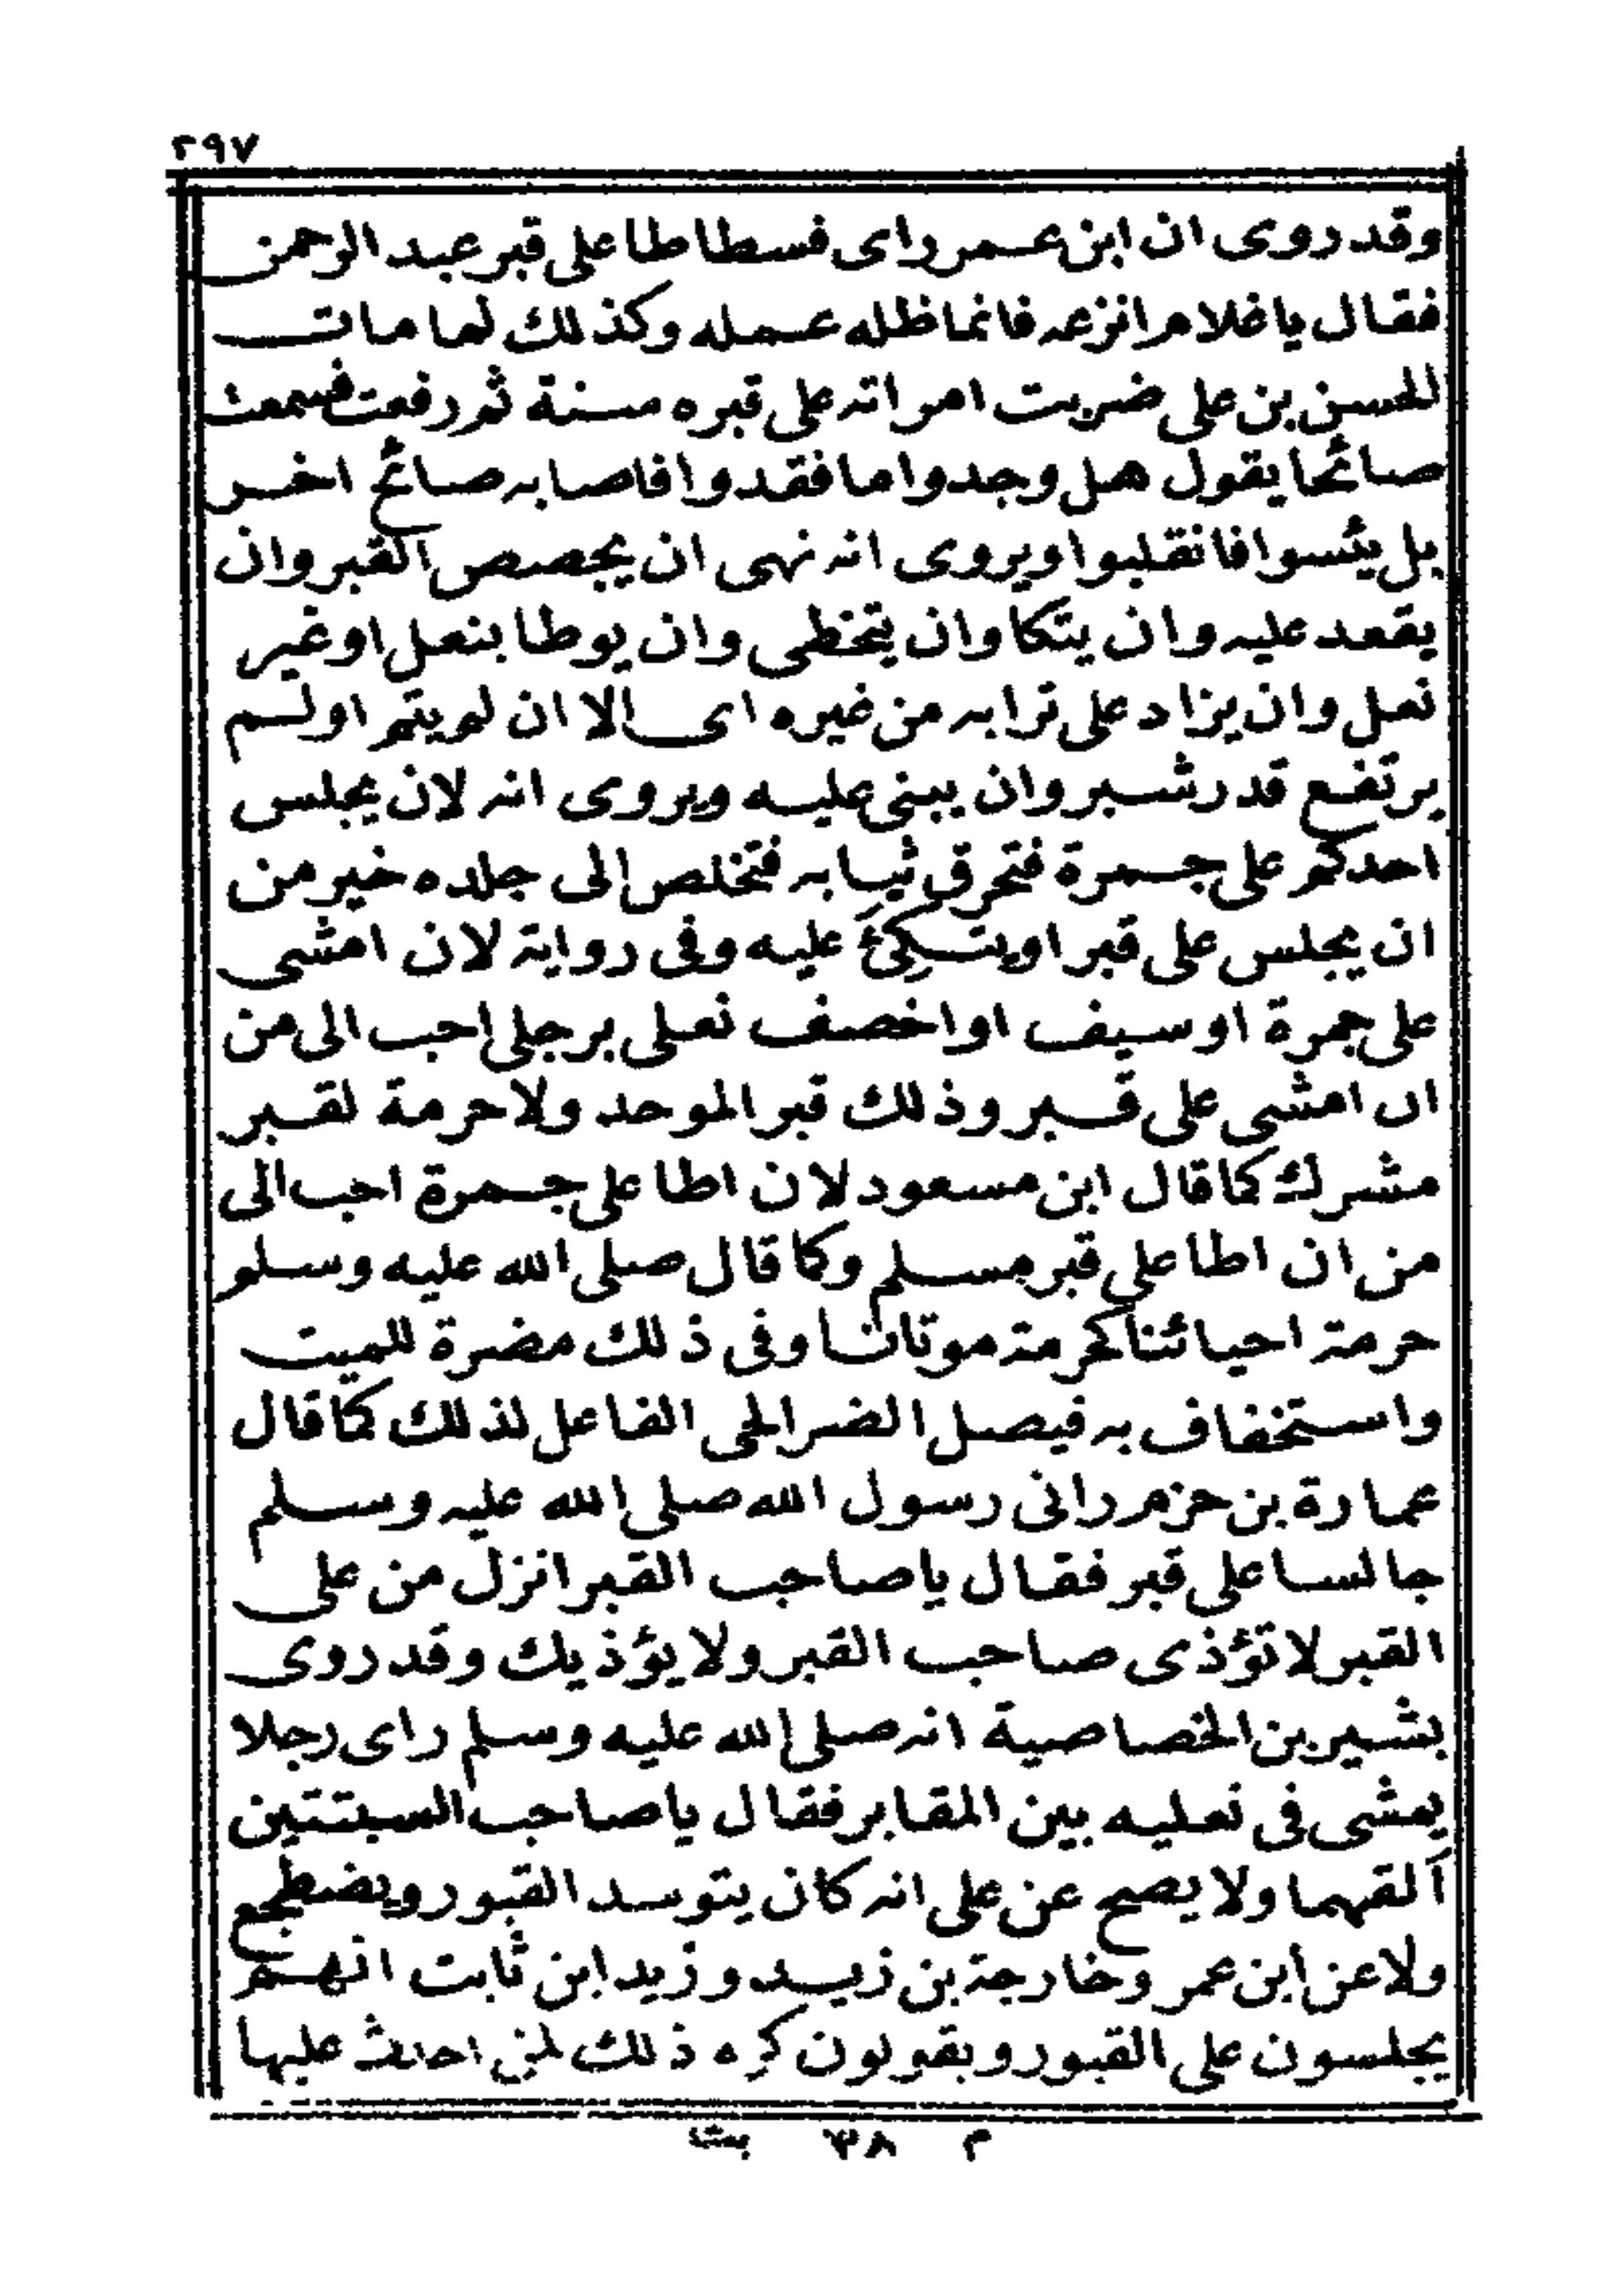 ٢٩٧
وقد روى ان ابن عمر راى فسطاطا على قبر عبد الرحمن
فقال يا غلام انزعه فانما ظله عمله وكذلك لما مات
الحسن بن على ضربت امراته على قبره سنة ثم رفعت فسمعت
صائحا يقول هل وجدوا ما فقدوا فاصابه صائح اخر
بل يئسوا فانقلبوا ويروى انه نهى ان يجصص القبر وان
يقعد عليه وان يتكا وان يتخطى وان يوطا بنعل او غير
نعل وان يزاد على ترابه من غيره اى الا ان لم يتم او لم
يرتفع قدر شبر وان يبنى عليه ويروى انه لان يجلس
احدكم على جمرة فتحرق ثيابه فتخلص الى جلده خير من
ان يجلس على قبر او يتكئ عليه وفى رواية لان امشى
على جمرة او سيف او اخصف نعلى برجلى احب الى من
ان امشى على قبر وذلك قبر الموحد ولا حرمة لقبر
مشرك كما قال ابن مسعود لان اطا على جمرة احب الى
من ان اطا على قبر مسلم وكما قال صلى الله عليه وسلم
حرمة احيائنا كحرمة موتانا وفى ذلك مضرة للميت
واستخفاف به فيصل الضر الحى الفاعل لذلك كما قال
عمارة بن حزم رانى رسول الله صلى الله عليه وسلم
جالسا على قبر فقال يا صاحب القبر انزل من على
القبر لا تؤذى صاحب القبر ولا يؤذيك وقد روى
بشير بن الخصاصية انه صلى الله عليه وسلم راى رجلا
يمشى فى نعليه بين المقابر فقال يا صاحب السبتتين
القهما ولا يصح عن على انه كان يتوسد القبور ويضطجع
ولا عن ابن عمر وخارجة بن زيد وزيد ابن ثابت انهم
يجلسون على القبور ويقولون كره ذلك لمن احدث عليها
م ٣٨